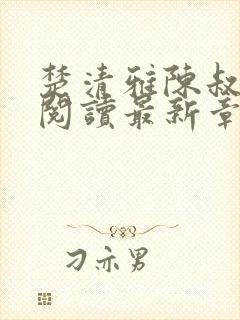 楚清雅陳叔
閱讀最新章
刁亦男